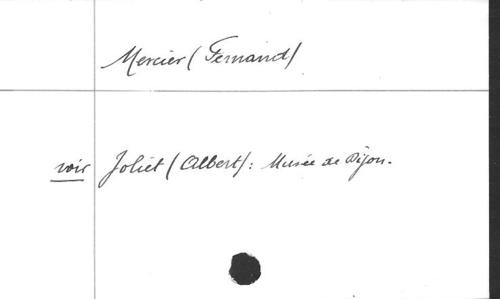 Mercier (Fernand)
voir Joliet (Albert) : Musée de Dijon.